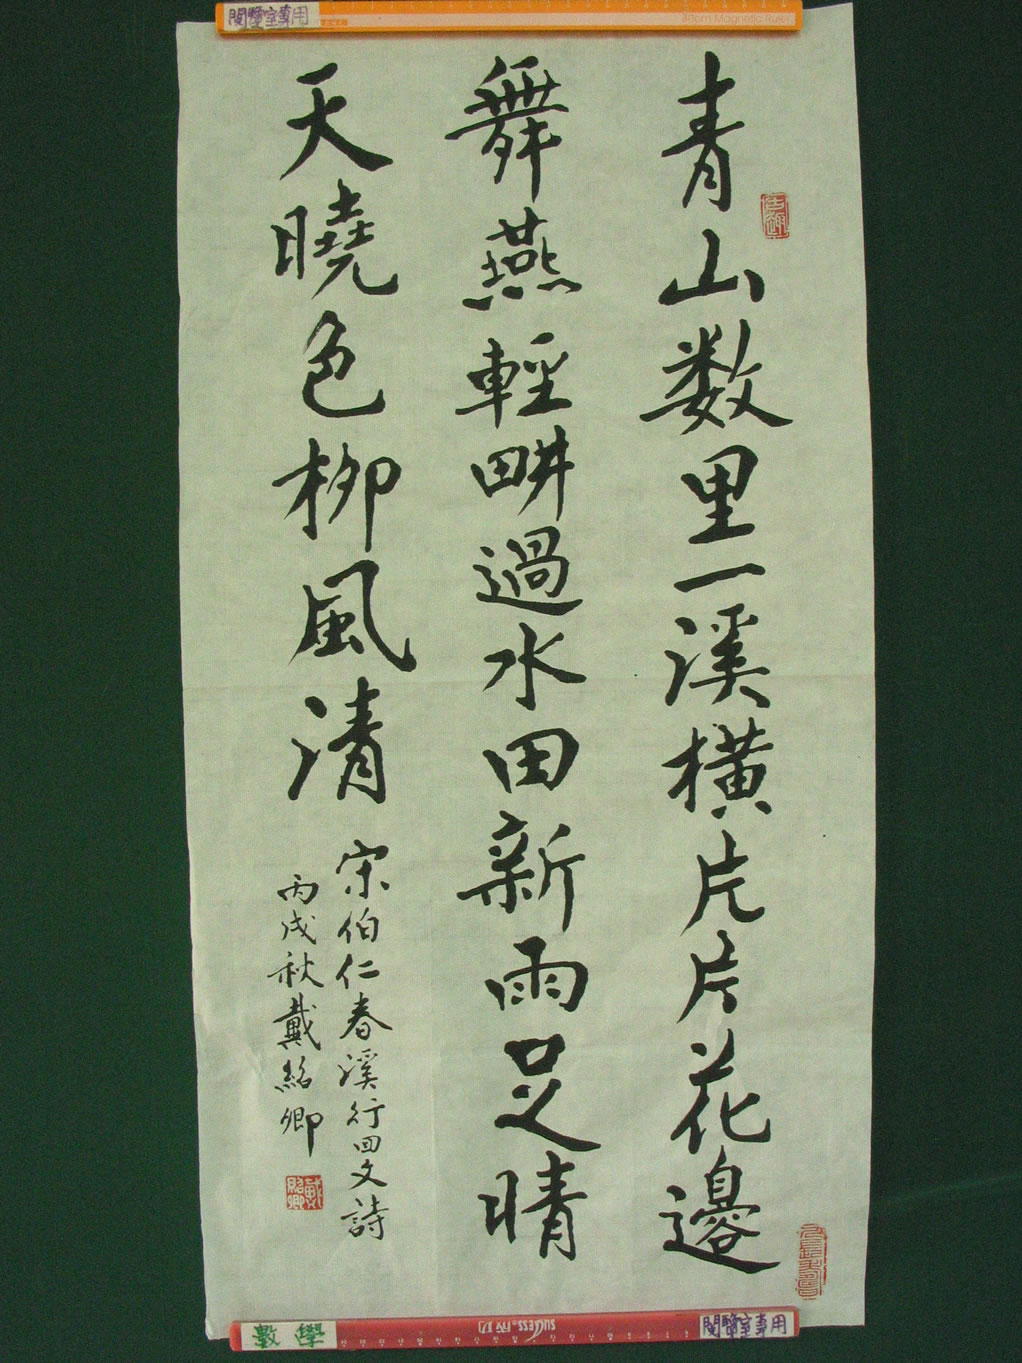 閱覽室專用
30cm Magnetic Ruler
青山数里一溪橫片片花邊
舞燕輕畊過水田新雨足晴
天曉色柳風清
宋伯仁春溪行回文詩
丙戌秋戴紹卿
數學
SUCCESS 成功
閱覽室專用